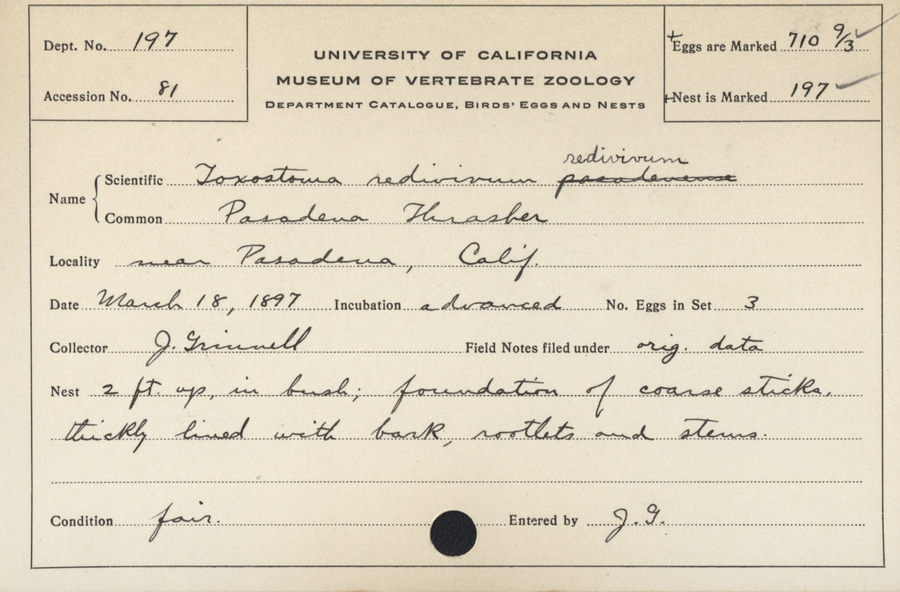 Dept. No. 197
Accession No. 81
UNIVERSITY OF CALIFORNIA
MUSEUM OF VERTEBRATE ZOOLOGY
DEPARTMENT CATALOGUE, BIRDS' EGGS AND NESTS
+Eggs are Marked 710 9/3
+Nest is Marked 197
redivivum
Name { Scientific Toxostoma redivivum pasadenense
Common Pasadena Thrasher
Locality near Pasadena, Calif.
Date March 18, 1897 Incubation advanced No. Eggs in Set 3
Collector J. Grinnell Field Notes filed under orig. data
Nest 2 ft. up, in bush; foundation of coarse sticks,
thickly lined with bark, rootlets and stems.
Condition fair. Entered by J. G.